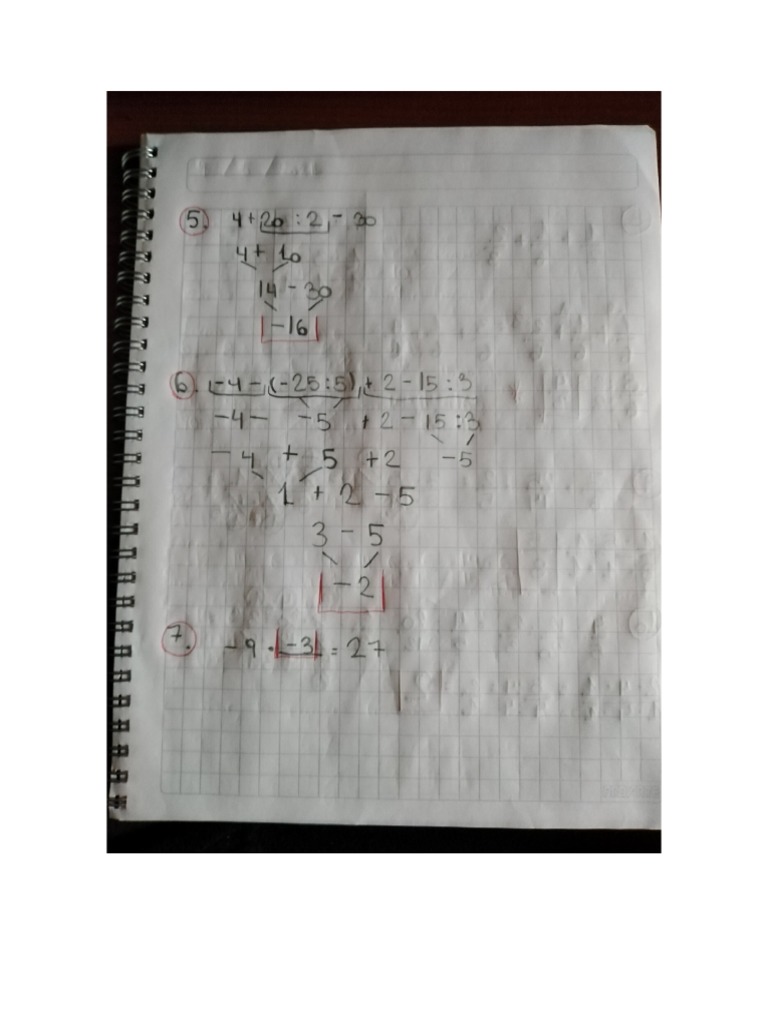 5. 4+20:2-30
4+10
14-30
-16
6. -4-(-25:5)+2-15:3
-4- -5 +2-15:3
-4 + 5 +2 -5
1 + 2 -5
3 - 5
-2
7. -9 · -3 = 27